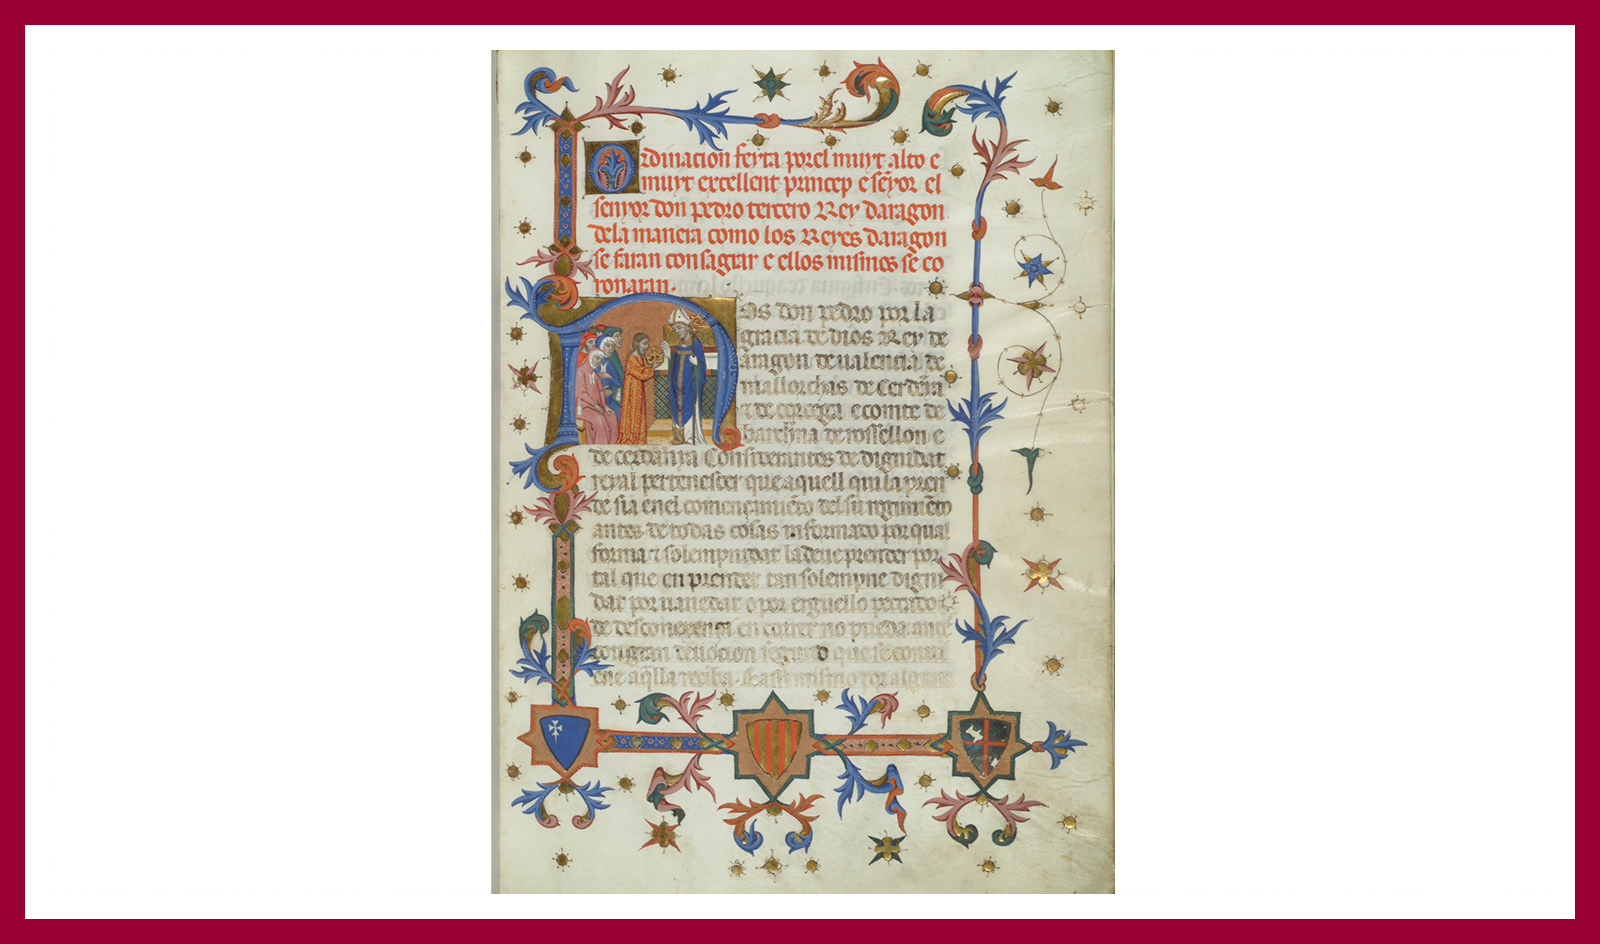 Ordinacion feyta por el muyt alto e
muyt excellent princep e seyor el
senyor don pedro tercero Rey daragon
de la manera como los Reyes daragon
se faran consagrar e ellos mismos se co
ronaran.
Nos don pedro por la
gracia de dios Rey de
aragon de valencia de
mallorchas de Cerdeya
e de corcega e comte de
barchna de rossellon e
de cerdanya Considerantes de dignidat
reyal pertenescer que aquell qui la pren
de sia en el començamiento del su regimiento
antes de todas cosas informado por qual
forma e solempnidat la deve prender por
tal que en prender tan solempne digni
dat por vanedat o por erguello peccado
de desconexença en correr no pueda ante
con gran devocion segund que se convi
ene aqlla reciba. E assi mismo por alguna